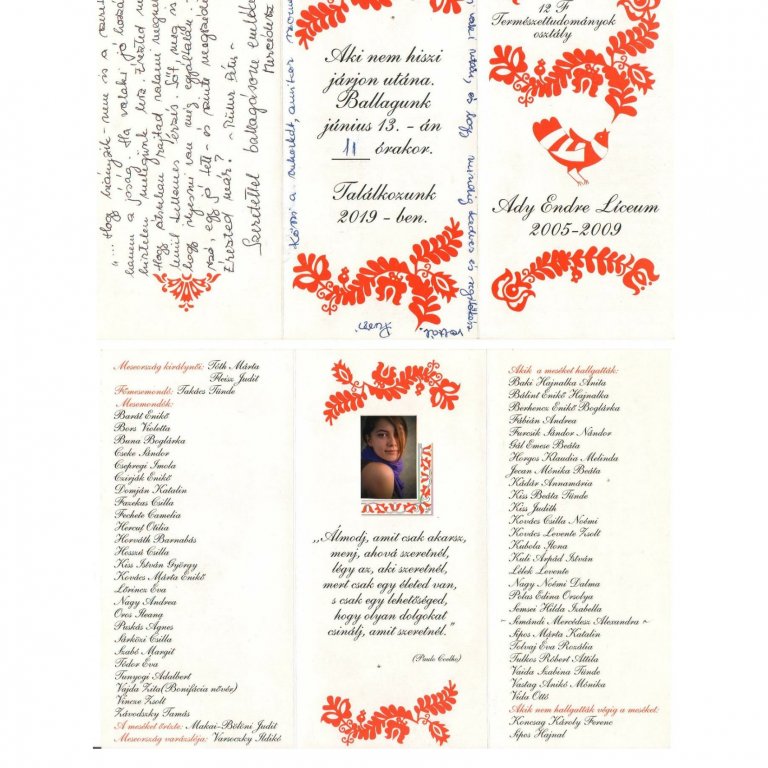 "... Hogy hiányzik - nem is a szeret
hanem a jóság. Ha valaki jó hozzá
hirtelen melegünk lesz. Érezted m
Hogy átsuhan rajtad valami megnev
tenül kellemes érzés. Sőt, meg is
hogy ilyesmi van még egyáltalán.
szó, egy jó tett - és szinte megrázó
Érezted már? - Müller Péter -
Szeretettel ballagásom emlék
Mercédesz
Aki nem hiszi
járjon utána.
Ballagunk
június 13. - án
11 órakor.
Találkozunk
2019 - ben.
és hogy mindig kedves és segítőkész
voltál.
Puszi
12 F
Természettudományok
osztály
Ady Endre Líceum
2005-2009
Meseország királynői: Tóth Márta
Fleisz Judit
Főmesemondó: Takács Tünde
Mesemondók:
Barát Enikő
Bors Violetta
Buna Boglárka
Cseke Sándor
Csepregi Imola
Czirják Enikő
Domján Katalin
Fazekas Csilla
Fechete Camelia
Hercuț Otilia
Horváth Barnabás
Hosszú Csilla
Kiss István György
Kovács Márta Enikő
Lőrincz Éva
Nagy Andrea
Oros Ileana
Puskás Ágnes
Sárközi Csilla
Szabó Margit
Tódor Éva
Tunyogi Adalbert
Vajda Zita(Bonifácia nővér)
Vincze Zsolt
Závodszky Tamás
A meséket őrizte: Makai-Bölöni Judit
Meseország varázslója: Varsoczky Ildikó
,,Álmodj, amit csak akarsz,
menj, ahová szeretnél,
légy az, aki szeretnél,
mert csak egy életed van,
s csak egy lehetőséged,
hogy olyan dolgokat
csinálj, amit szeretnél."
(Paulo Coelho)
Akik a meséket hallgatták:
Baki Hajnalka Anita
Bálint Enikő Hajnalka
Berhencz Enikő Boglárka
Fábián Andrea
Furcsik Sándor Nándor
Gál Emese Beáta
Horgos Klaudia Melinda
Jecan Mónika Beáta
Kádár Annamária
Kiss Beáta Tünde
Kiss Judith
Kovács Csilla Noémi
Kovács Levente Zsolt
Kubola Ilona
Kuli Árpád István
Lélek Levente
Nagy Noémi Dalma
Polus Edina Orsolya
Semsei Hilda Izabella
~ Simándi Mercédesz Alexandra ~
Sípos Márta Katalin
Tolvaj Éva Rozália
Tulkos Róbert Attila
Vaida Szabina Tünde
Vastag Anikó Mónika
Vida Ottó
Akik nem hallgatták végig a meséket:
Koncsag Károly Ferenc
Sípos Hajnal